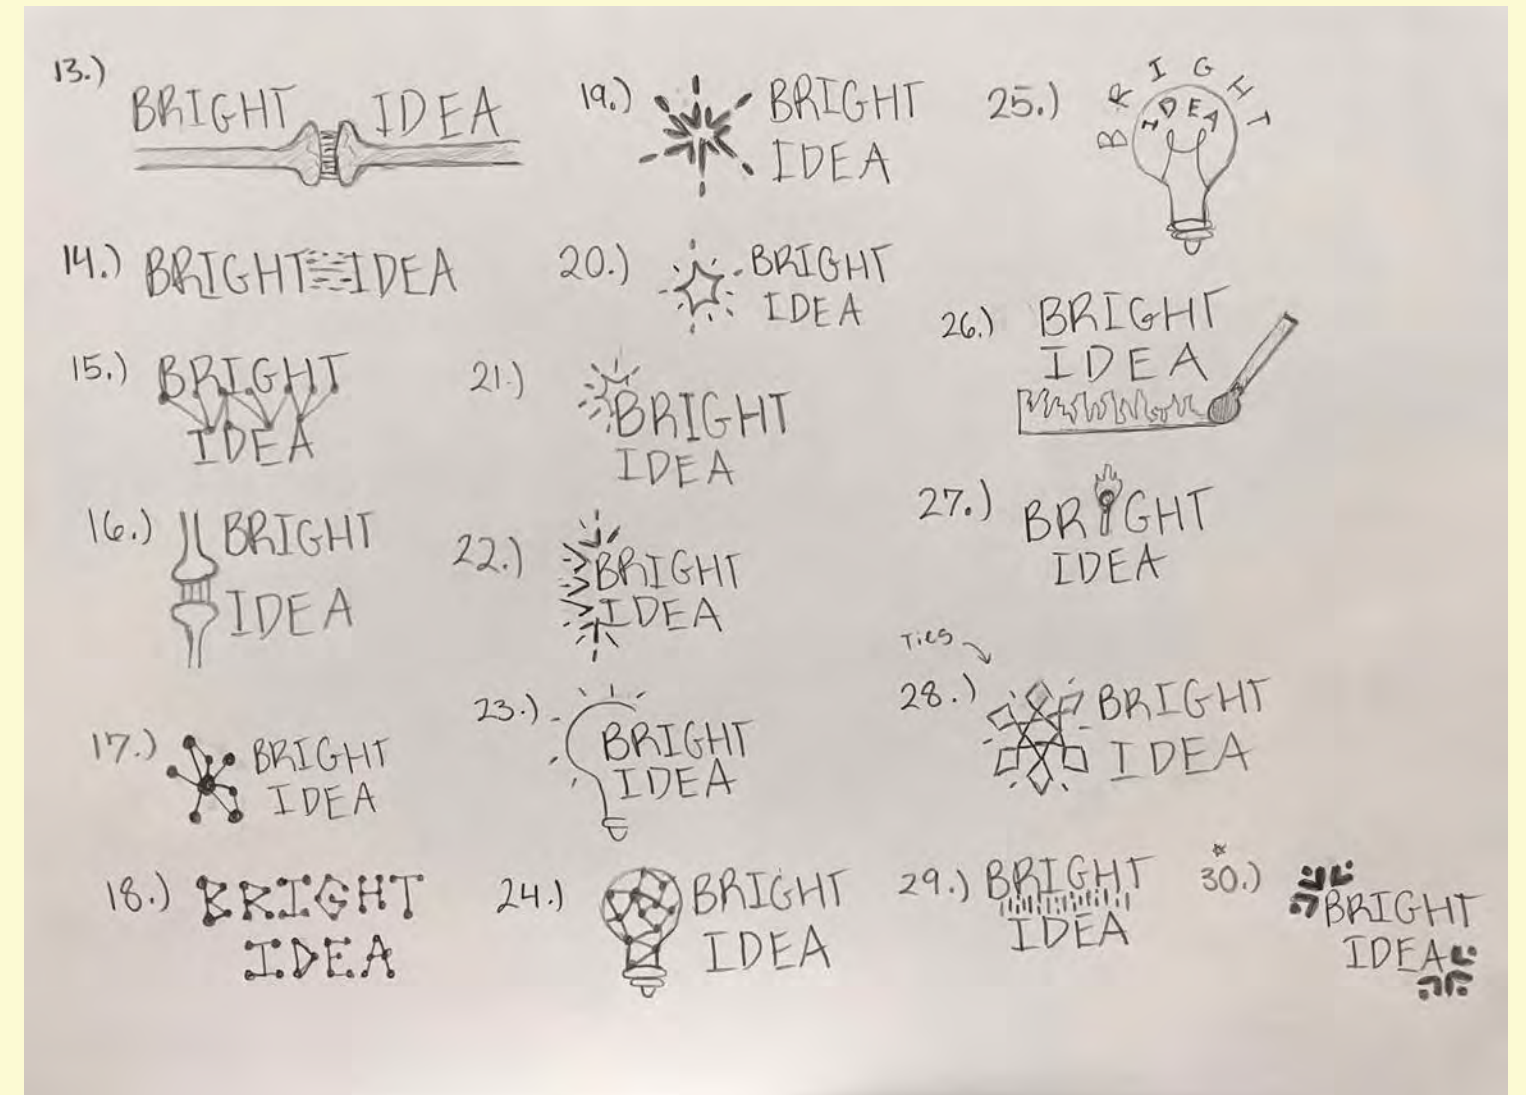 13.)
BRIGHT IDEA
14.) BRIGHT IDEA
15.) BRIGHT
IDEA
16.) BRIGHT
IDEA
17.) BRIGHT
IDEA
18.) BRIGHT
IDEA
19.) BRIGHT
IDEA
20.) BRIGHT
IDEA
21.) BRIGHT
IDEA
22.) BRIGHT
IDEA
23.) BRIGHT
IDEA
24.) BRIGHT
IDEA
25.) BRIGHT
IDEA
26.) BRIGHT
IDEA
27.) BRIGHT
IDEA
Ties
28.) BRIGHT
IDEA
29.) BRIGHT
IDEA
30.) BRIGHT
IDEA